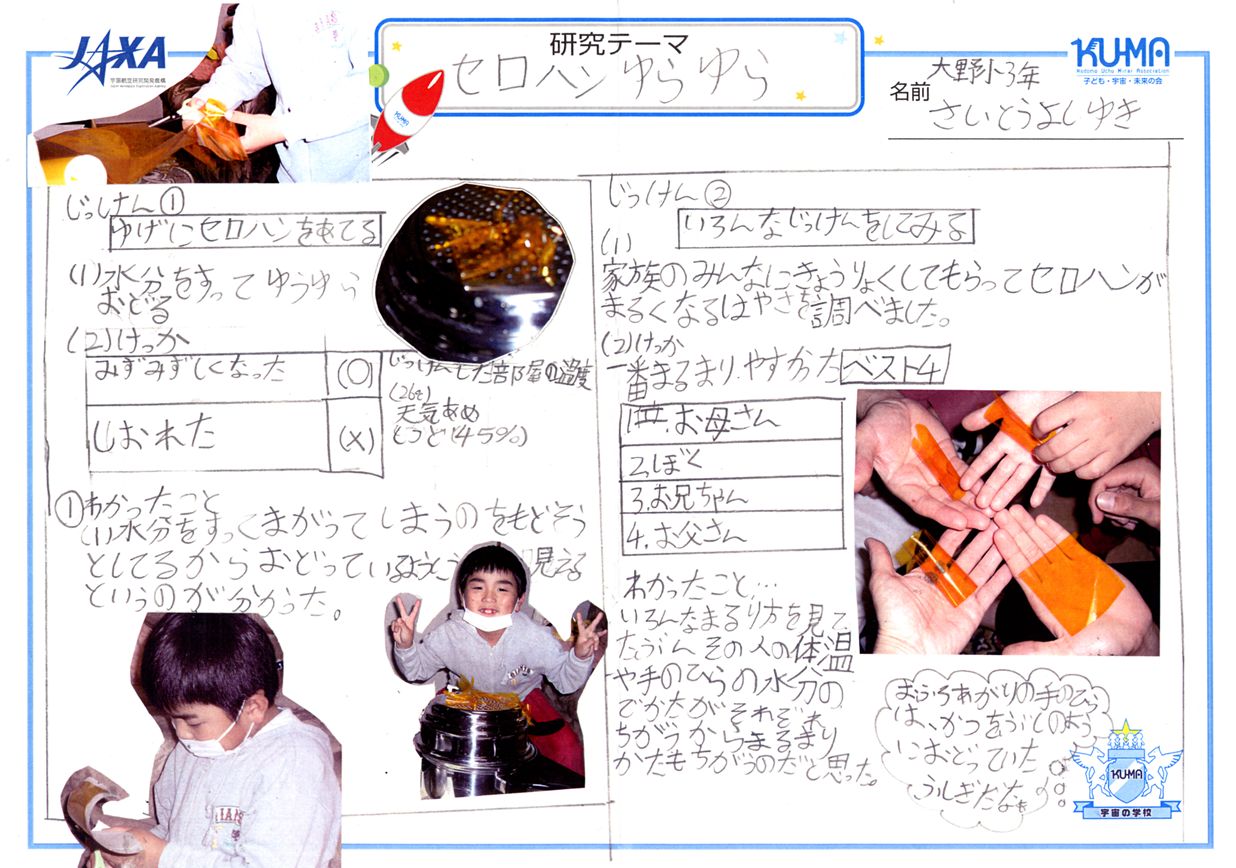 JAXA
宇宙航空研究開発機構
Japan Aerospace Exploration Agency
研究テーマ
セロハンゆらゆら
KUMA
KUMA
Kodomo Uchu Mirai Association
子ども・宇宙・未来の会
名前
大野小3年
さいとうよしゆき
じっけん①
ゆげにセロハンをあてる
(1)水分をすってゆらゆら
おどる
(2)けっか
みずみずしくなった (○)
しおれた (×)
じっけんした部屋の温度
(26℃)
天気あめ
(しつど45%)
①わかったこと
(1)水分をすってまがってしまうのをもどそう
としてるからおどっているように見える
というのが分かった。
じっけん②
いろんなじっけんをしてみる
(1)
家族のみんなにきょうりょくしてもらってセロハンが
まるくなるはやさを調べました。
(2)けっか
一番まるまりやすかったベスト4
1.お母さん
2.ぼく
3.お兄ちゃん
4.お父さん
わかったこと…
いろんなまるり方を見て
たぶんその人の体温
や手のひらの水分の
でかたがそれぞれ
ちがうからまるまり
かたもちがうのだと思った。
おふろあがりの手のひら
は、かつをぶしのよう
におどっていた
ふしぎだなぁ
KUMA
宇宙の学校